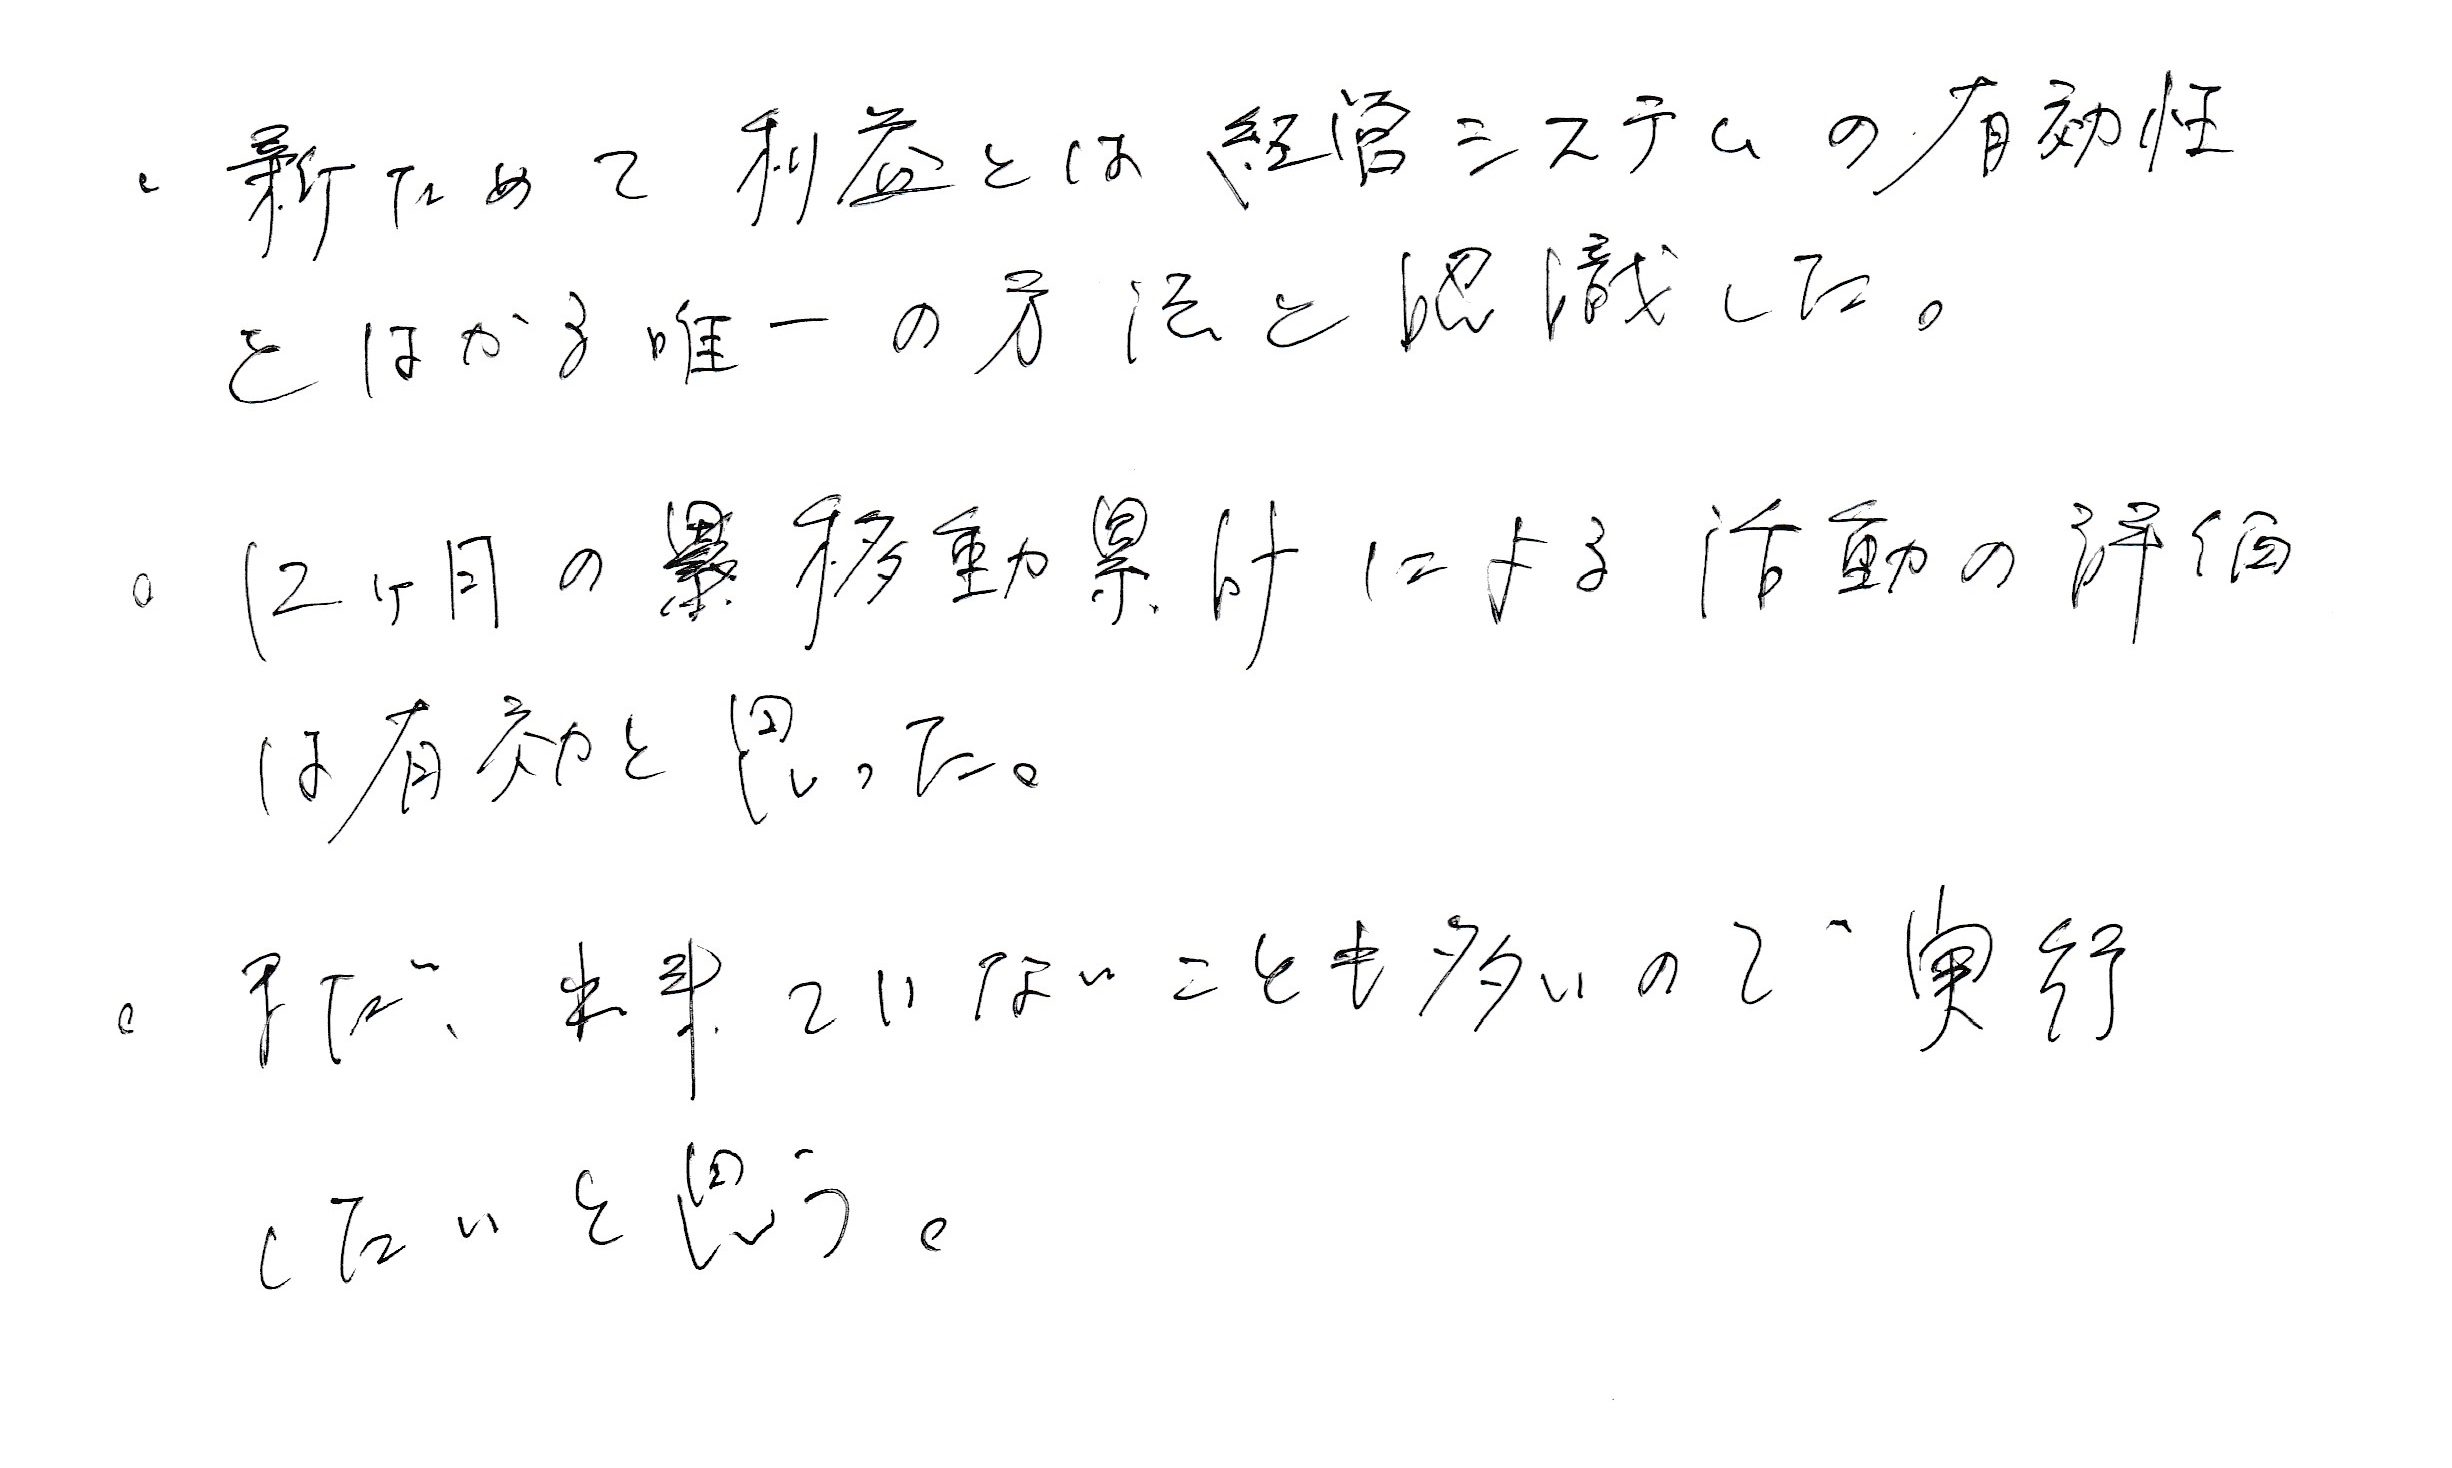 ・新ためて利益とは経営システムの有効性
をはかる唯一の方法と認識した。
・12ヶ月の移動累計による活動の評価
は有効と思った。
・まだ、出来ていないことも多いので実行
したいと思う。